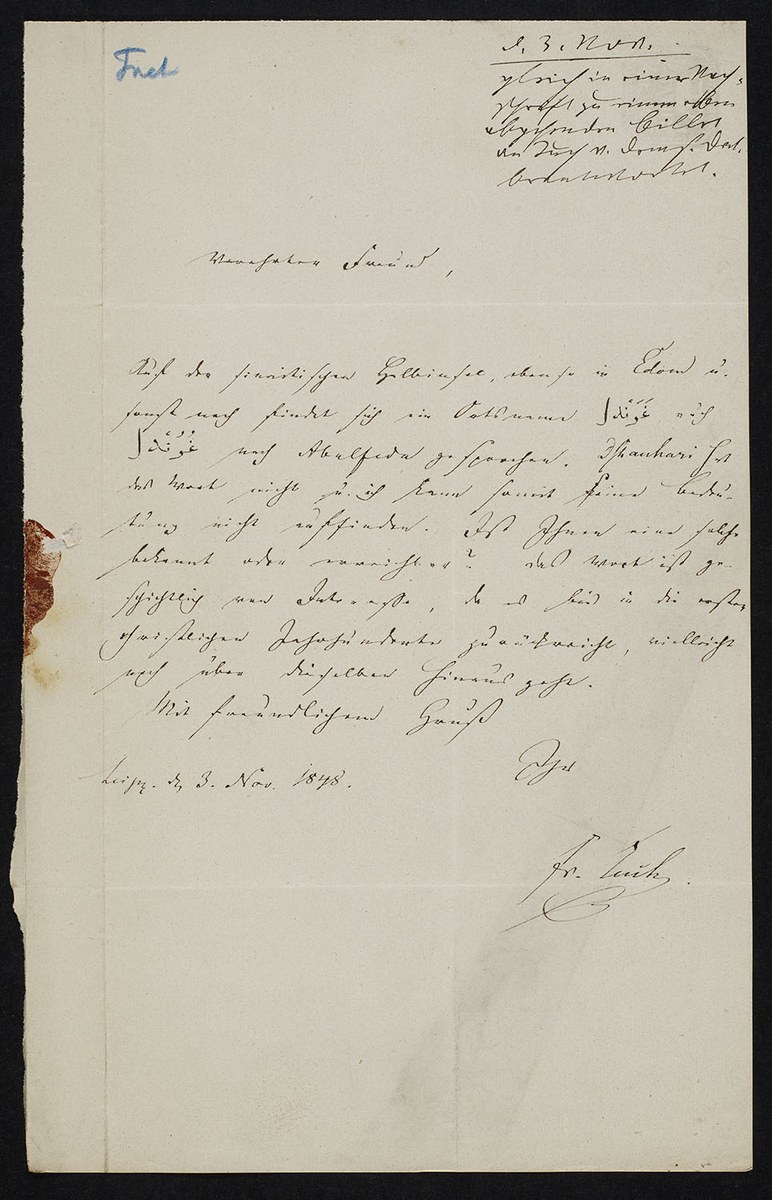 Tuch
d. 3. Nov.
gleich in einer Nach-
schrift zu einem eben
abgehenden Billet
an Tuch v. dems. Dat.
beantwortet.
Verehrter Freund,
Auf der sinaitischen Halbinsel, ebenso in Edom u.
sonst noch findet sich ein Ortsname auch
nach Abulfeda gesprochen. Dshauhari hat
das Wort nicht u. ich kann somit seine Bedeu-
tung nicht auffinden. Ist Ihnen eine solche
bekannt oder erreichbar? Das Wort ist ge-
schichtlich von Interesse, da es bis in die ersten
christlichen Jahrhunderte zurückreicht, vielleicht
noch über dieselben hinaus geht.
Mit freundlichem Gruß
Ihr
Leipz. d. 3. Nov. 1848.
Fr. Tuch.